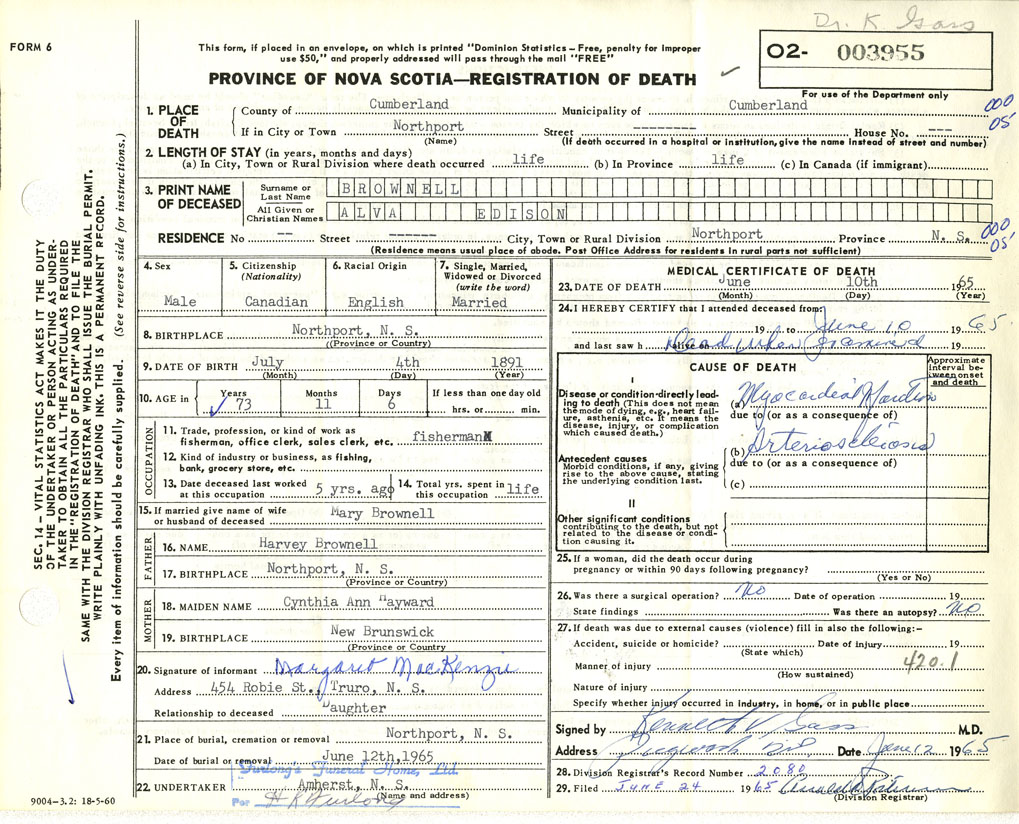 Dr. K Gass
FORM 6
This form, if placed in an envelope, on which is printed "Dominion Statistics – Free, penalty for improper
use $50," and properly addressed will pass through the mail "FREE"
O2- 003955
PROVINCE OF NOVA SCOTIA—REGISTRATION OF DEATH
For use of the Department only
1. PLACE OF DEATH
County of Cumberland Municipality of Cumberland
000
05
If in City or Town Northport Street --------- House No. ---
(Name) (If death occurred in a hospital or institution, give the name instead of street and number)
2. LENGTH OF STAY (in years, months and days)
(a) In City, Town or Rural Division where death occurred life (b) In Province life (c) In Canada (if immigrant)
3. PRINT NAME OF DECEASED
Surname or Last Name BROWNELL
All Given or Christian Names ALVA EDISON
RESIDENCE No -- Street ------ City, Town or Rural Division Northport Province N. S.
000
05
(Residence means usual place of abode. Post Office Address for residents in rural parts not sufficient)
4. Sex
Male
5. Citizenship
(Nationality)
Canadian
6. Racial Origin
English
7. Single, Married,
Widowed or Divorced
(write the word)
Married
8. BIRTHPLACE Northport, N. S.
(Province or Country)
9. DATE OF BIRTH July 4th 1891
(Month) (Day) (Year)
10. AGE in Years Months Days If less than one day old
73 11 6 hrs. or min.
OCCUPATION
11. Trade, profession, or kind of work as
fisherman, office clerk, sales clerk, etc. fisherman
12. Kind of industry or business, as fishing,
bank, grocery store, etc.
13. Date deceased last worked
at this occupation 5 yrs. ago
14. Total yrs. spent in
this occupation life
15. If married give name of wife
or husband of deceased Mary Brownell
FATHER
16. NAME Harvey Brownell
17. BIRTHPLACE Northport, N. S.
(Province or Country)
MOTHER
18. MAIDEN NAME Cynthia Ann Hayward
19. BIRTHPLACE New Brunswick
(Province or Country)
20. Signature of informant Margaret MacKenzie
Address 454 Robie St., Truro, N. S.
Relationship to deceased Daughter
21. Place of burial, cremation or removal Northport, N. S.
Date of burial or removal June 12th, 1965
Furlong's Funeral Home, Ltd.
22. UNDERTAKER Amherst, N. S.
(Name and address)
Per H R Furlong
9004-3.2: 18-5-60
MEDICAL CERTIFICATE OF DEATH
23. DATE OF DEATH June 10th 1965
(Month) (Day) (Year)
24. I HEREBY CERTIFY that I attended deceased from:
19 to June 10 1965
and last saw h Dead when Examined 19
CAUSE OF DEATH
Approximate interval between onset and death
I
Disease or condition directly leading to death (This does not mean the mode of dying, e.g., heart failure, asthenia, etc. It means the disease, injury, or complication which caused death.)
(a) Myocardial
due to (or as a consequence of)
Antecedent causes
Morbid conditions, if any, giving rise to the above cause, stating the underlying condition last.
(b) Arteriosclerosis
due to (or as a consequence of)
(c)
II
Other significant conditions
contributing to the death, but not related to the disease or condition causing it.
25. If a woman, did the death occur during
pregnancy or within 90 days following pregnancy?
(Yes or No)
26. Was there a surgical operation? No Date of operation 19
State findings Was there an autopsy? No
27. If death was due to external causes (violence) fill in also the following:–
Accident, suicide or homicide? Date of injury 19
(State which)
420.1
Manner of injury
(How sustained)
Nature of injury
Specify whether injury occurred in industry, in home, or in public place
Signed by Kenneth V Gass M.D.
Address Pugwash Date June 12 1965
28. Division Registrar's Record Number 2080
29. Filed June 24 1965
(Division Registrar)
SEC. 14 – VITAL STATISTICS ACT MAKES IT THE DUTY
OF THE UNDERTAKER OR PERSON ACTING AS UNDER-
TAKER TO OBTAIN ALL THE PARTICULARS REQUIRED
IN THE "REGISTRATION OF DEATH" AND TO FILE THE
SAME WITH THE DIVISION REGISTRAR WHO SHALL ISSUE THE BURIAL PERMIT.
WRITE PLAINLY WITH UNFADING INK. THIS IS A PERMANENT RECORD.
Every item of information should be carefully supplied. (See reverse side for instructions.)